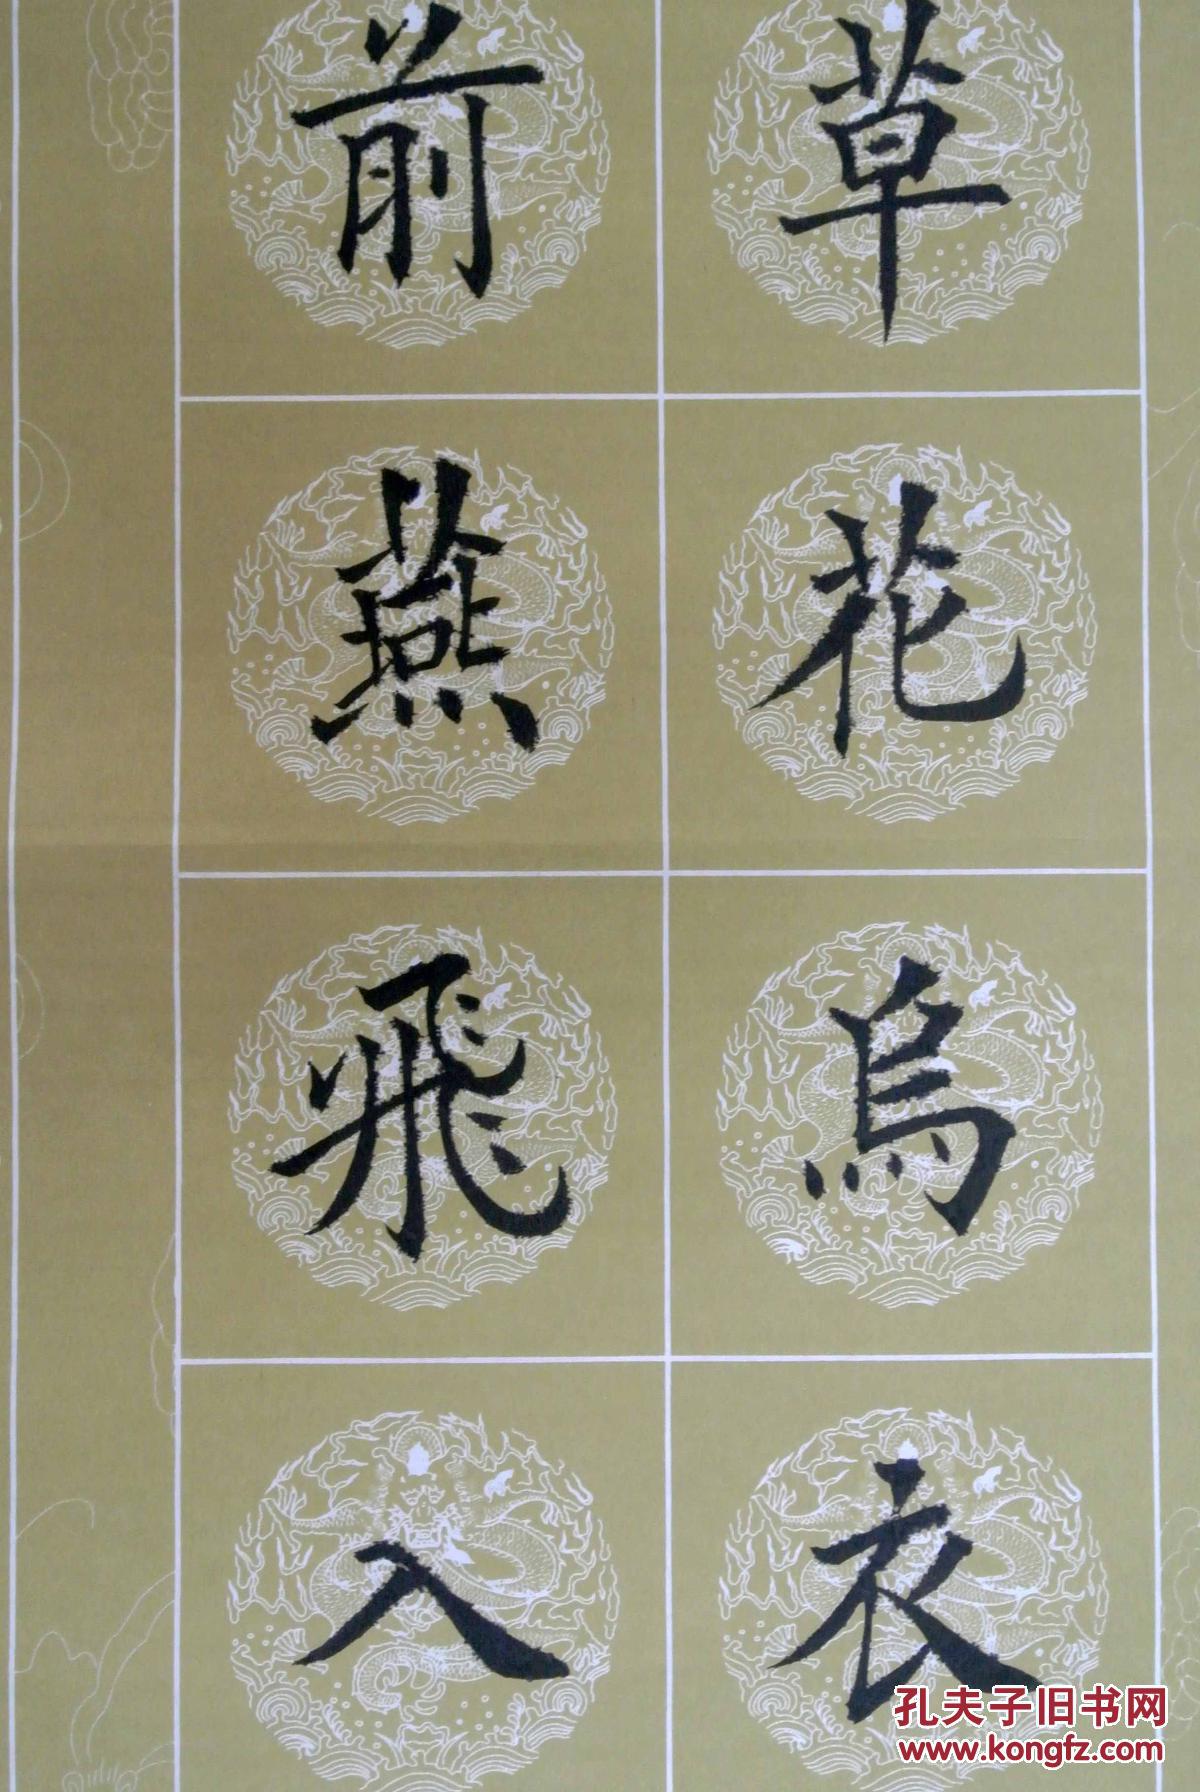 草花烏衣
前燕飛入
孔夫子旧书网
www.kongfz.com